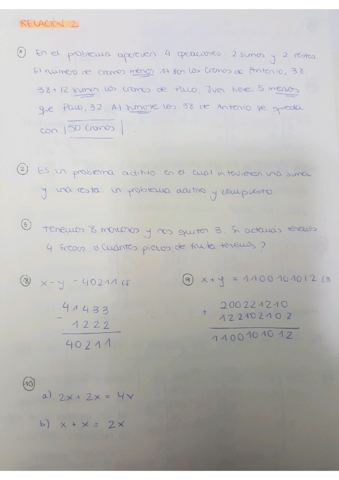 RELACIÓN 2
① En el problema aparecen 4 operaciones 2 sumas y 2 restas
El número de cromos menos 12 son los cromos de Antonio, 38
38+12 suman los cromos de Paco, Juan tiene 5 menos
que Paco, 32. Al sumarle los 38 de Antonio se queda
con 50 cromos
② Es un problema aditivo en el cual intervienen una suma
y una resta. un problema aditivo y compuesto.
Tenemos 8 manzanas y nos quitan 3. Si además tenemos
4 fresas ¿Cuántas piezas de fruta tenemos?
⑧ x - y = 40211 (5
41433
- 1222
40211
⑨ x + y = 1100101012 (3
200221210
+ 122102102
1100101012
⑩
a) 2x + 2x = 4x
b) x + x = 2x